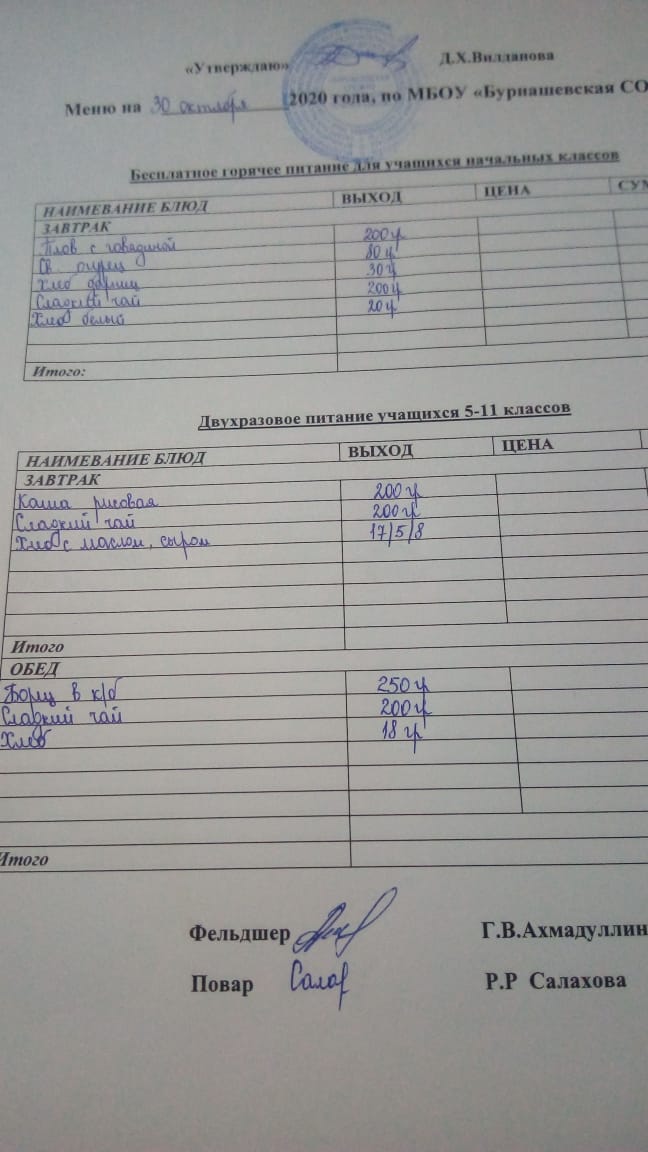 «Утверждаю» Д.Х.Вилданова
Меню на 30 октября 2020 года, по МБОУ «Бурнашевская СО
Бесплатное горячее питание для учащихся начальных классов
НАИМЕВАНИЕ БЛЮД ВЫХОД ЦЕНА СУМ
ЗАВТРАК
Плов с говядиной 200 г
Св. огурец 80 г
Хлеб 30 г
Сладкий чай 200 г
Хлеб белый 20 г
Итого:
Двухразовое питание учащихся 5-11 классов
НАИМЕВАНИЕ БЛЮД ВЫХОД ЦЕНА
ЗАВТРАК
Каша рисовая 200 г
Сладкий чай 200 г
Хлеб с маслом, сыром 17/5/8
Итого
ОБЕД
Борщ в к/б 250 г
Сладкий чай 200 г
Хлеб 18 гр
Итого
Фельдшер Г.В.Ахмадуллин
Повар Салах Р.Р Салахова